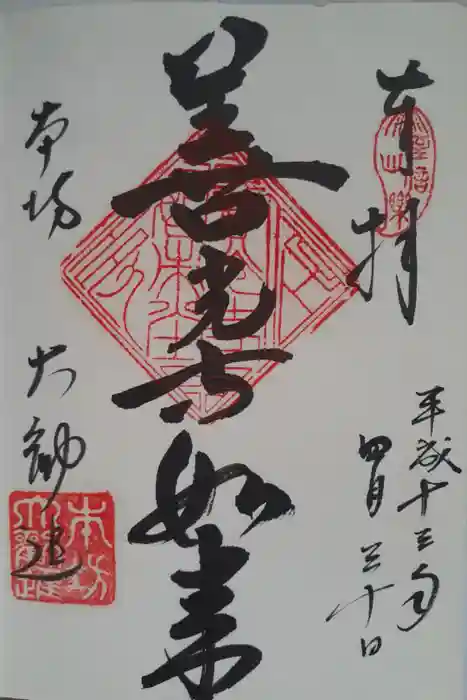 奉拝
平成十三年
四月三十日
善光寺如来
本坊 大勧進
本坊